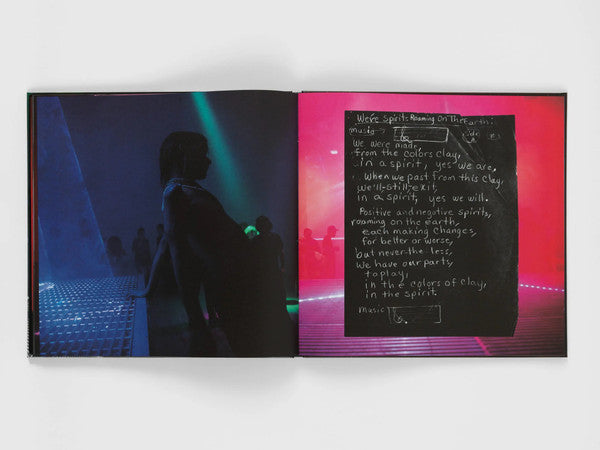 We're Spirits Roaming On The Earth:
music →
side
We were made,
from the colors clay,
in a spirit, yes we are,
When we past from this clay,
we'll still exit,
in a spirit, yes we will.
Positive and negative spirits,
roaming on the earth,
each making changes,
for better or worse,
but never the less,
We have our party
to play,
in the colors of clay,
in the spirit.
music